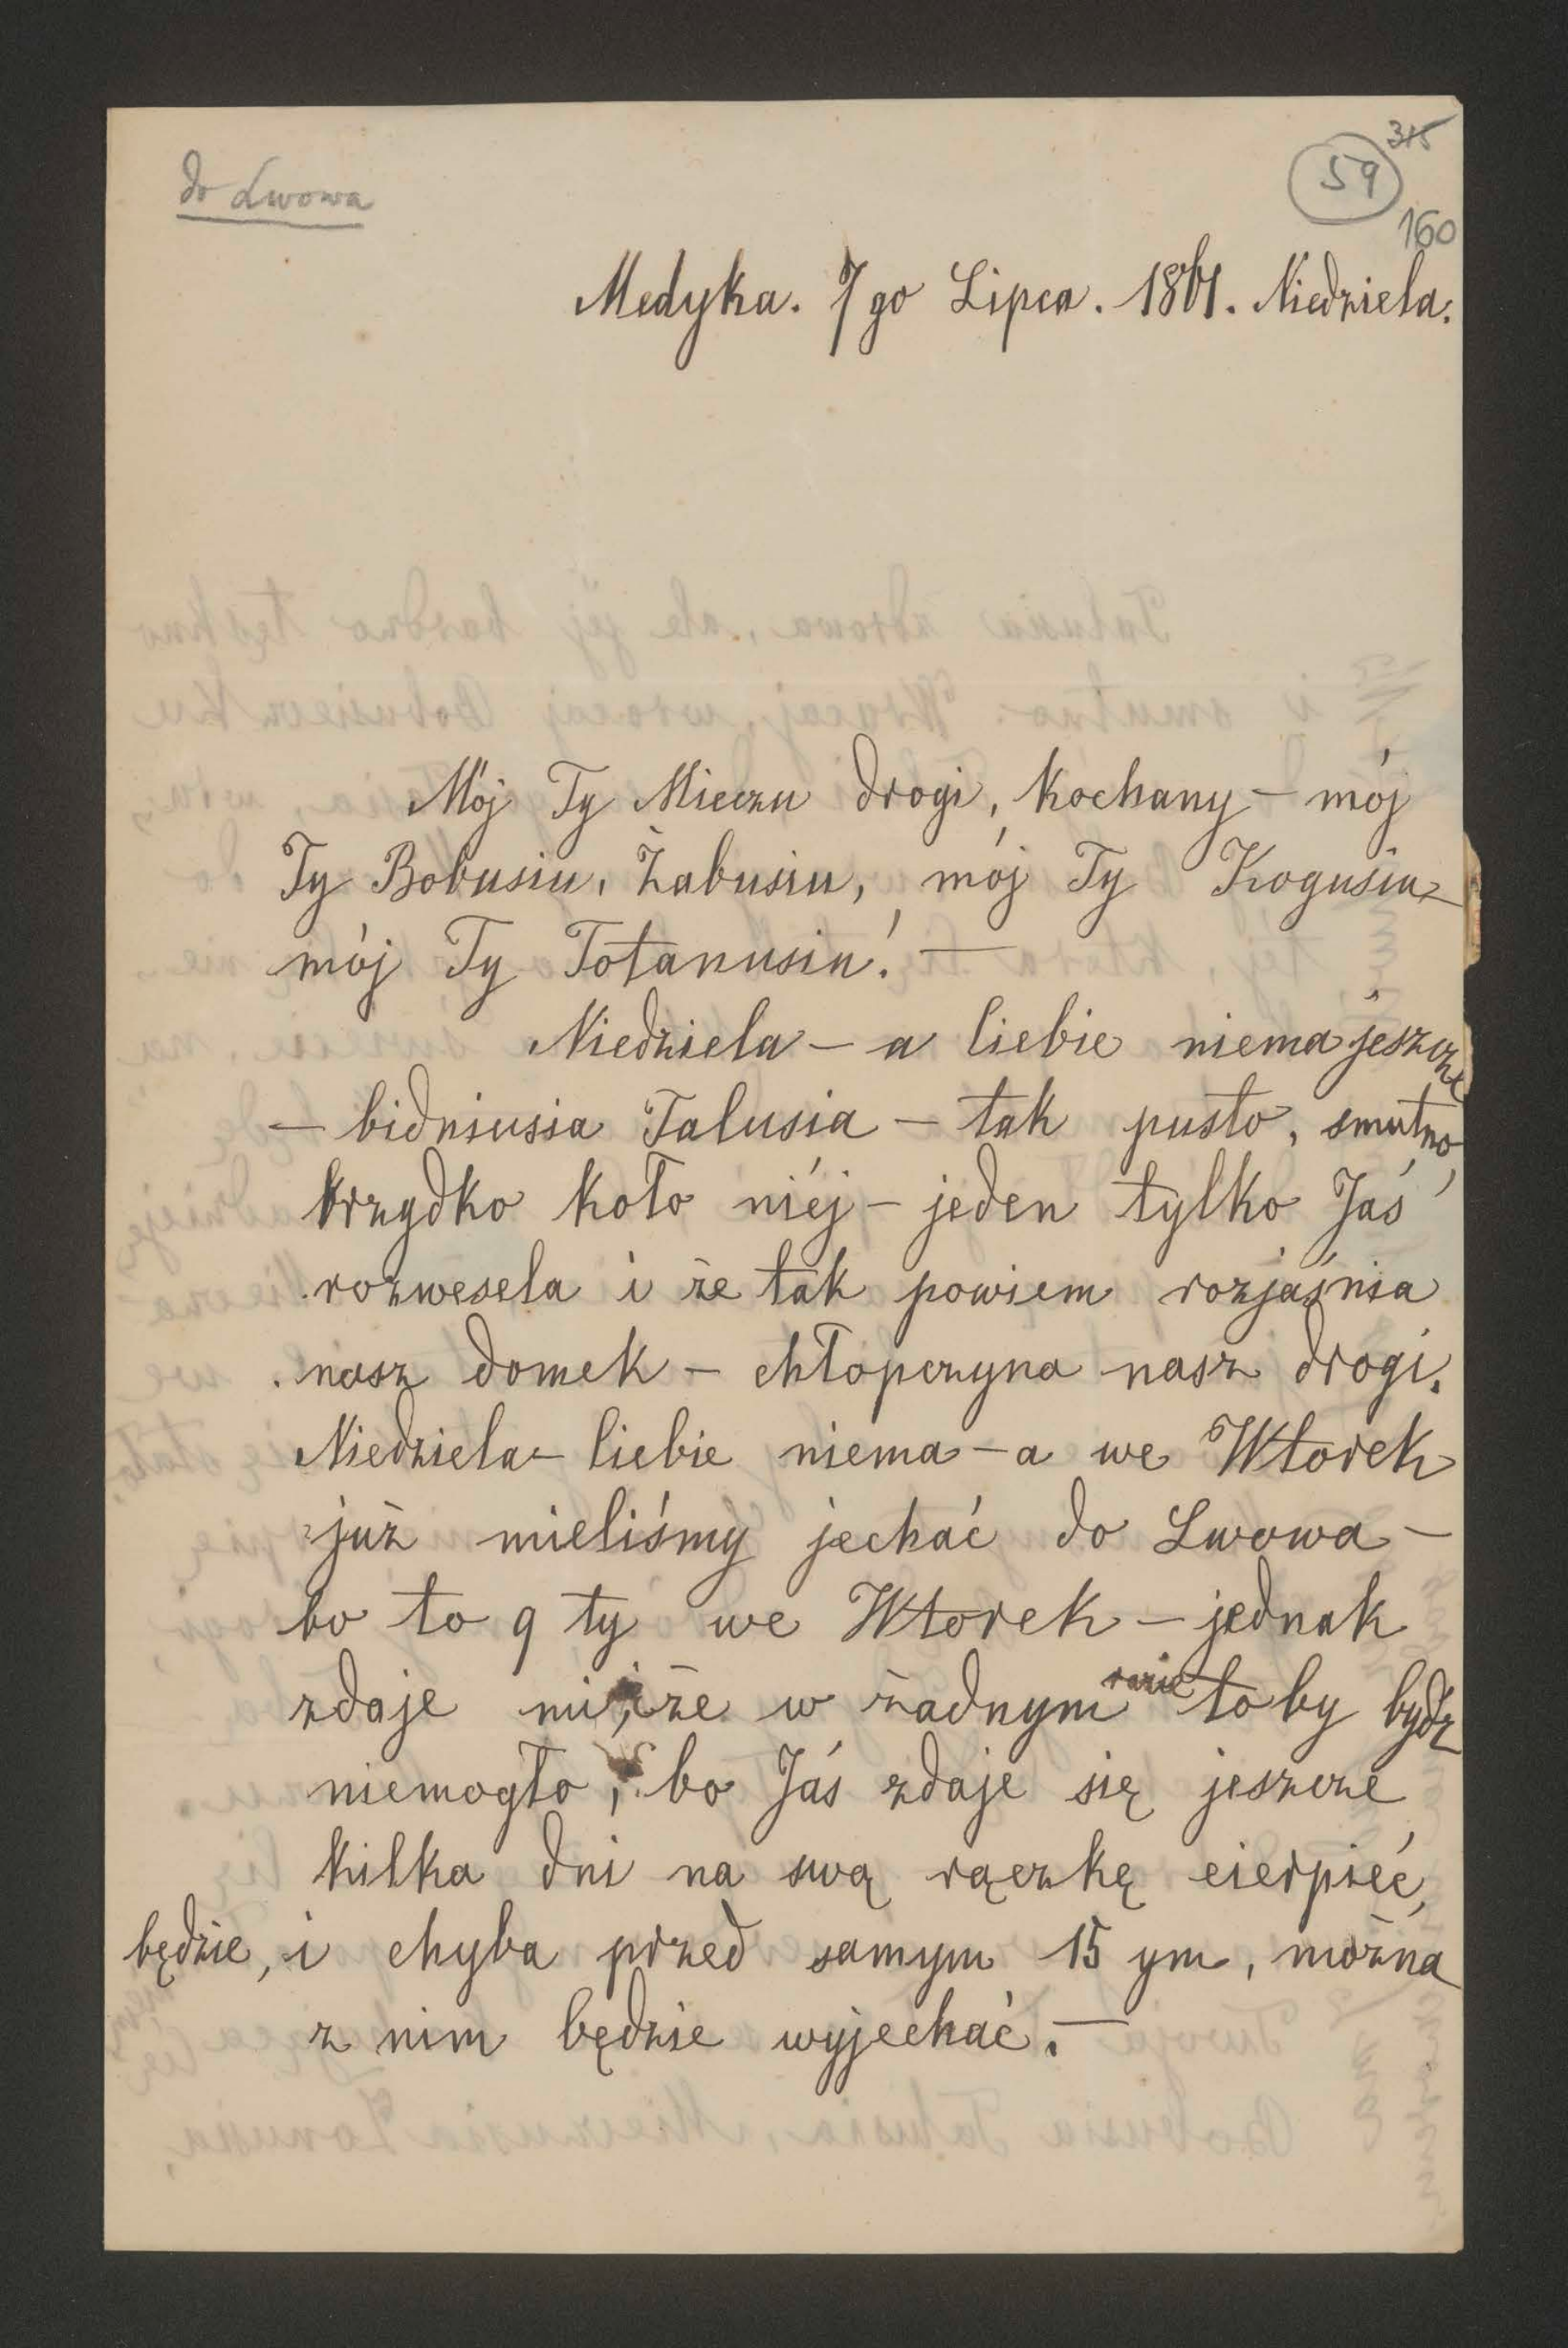 do Lwowa
315
59
160
Medyka. 7go Lipca. 1861. Niedziela.
Mój Ty Mieczu drogi, kochany – mój
Ty Bobusiu, Żabusiu, mój Ty Kogusiu –
mój Ty Totanusiu! —
Niedziela – a Ciebie niema jeszcze
– bidniusia Talusia – tak pusto, smutno,
brzydko koło niéj – jeden tylko Jaś
rozwesela i że tak powiem rozjaśnia
nasz domek – chłopczyna nasz drogi.
Niedziela – Ciebie niema – a we Wtorek
już mieliśmy jechać do Lwowa –
bo to 9ty we Wtorek – jednak
zdaje mi, że w żadnym razie toby bydź
niemogło, bo Jaś zdaje się jeszcze
kilka dni na swą rączkę cierpieć,
będzie, i chyba przed samym 15ym, można
z nim będzie wyjechać. —